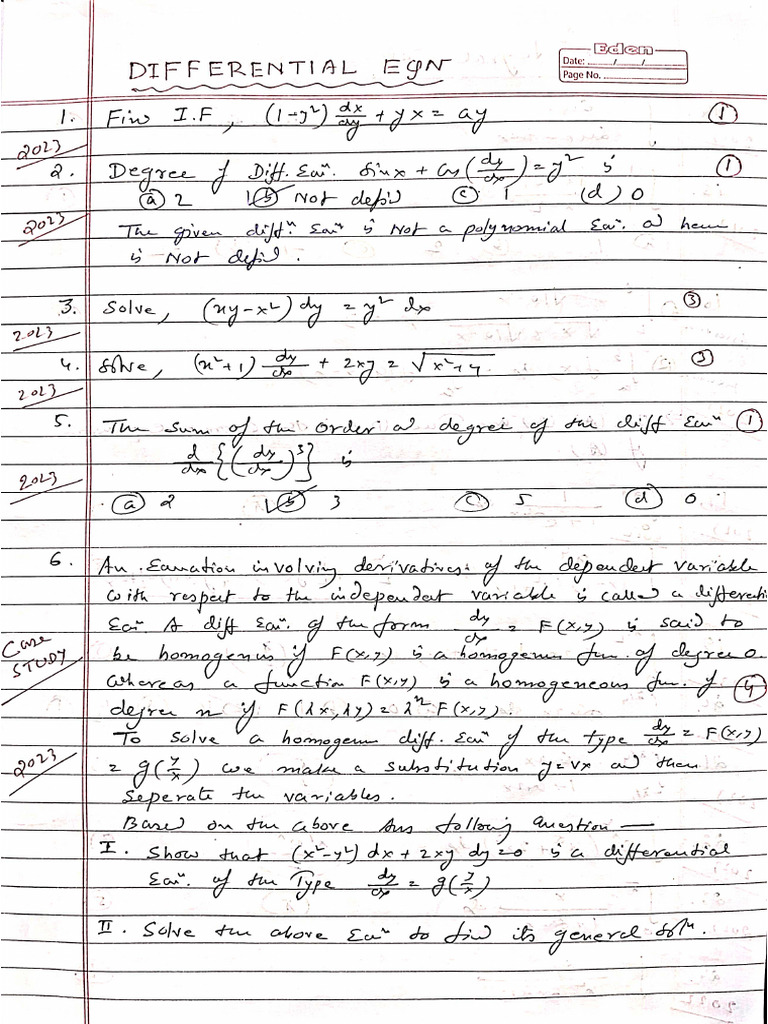 Eden
Date: ....../....../......
Page No. ..................
DIFFERENTIAL EQN
1. Find I.F, (1-y²) dx/dy + yx = ay ①
2023
2. Degree of Diff. Eqⁿ. Sinx + Cos(dy/dx) = y² is ①
ⓐ 2 ⓑ Not defid ⓒ 1 (d) 0
2023
The given diffⁿ. Eqⁿ is Not a polynomial Eqⁿ. & hence
is Not defid.
3. Solve, (xy-x²) dy = y² dx ③
2023
4. Solve, (x²+1) dy/dx + 2xy = √x²+4 ③
2023
5. The sum of the order & degree of the diff Eqⁿ ①
d/dx {(dy/dx)³} is
2023
ⓐ 2 ⓑ 3 ⓒ 5 ⓓ 0
6. An Equation involving derivatives of the dependent variable
with respect to the independent variable is called a differenti
Eqⁿ. A diff Eqⁿ. of the form dy/dx = F(x,y) is said to
be homogenus if F(x,y) is a homogenus fun. of degree 0.
Case STUDY
whereas a function F(x,y) is a homogeneous fun. of ④
degree n if F(λx, λy) = λⁿ F(x,y).
To solve a homogenus diff. Eqⁿ of the type dy/dx = F(x,y)
2023
= g(y/x) we make a substitution y=vx and then
seperate the variables.
Based on the above Ans following question —
I. Show that (x²-y²) dx + 2xy dy=0 is a differential
Eqⁿ. of the Type dy/dx = g(y/x)
II. Solve the above Eqⁿ to find its general solⁿ.